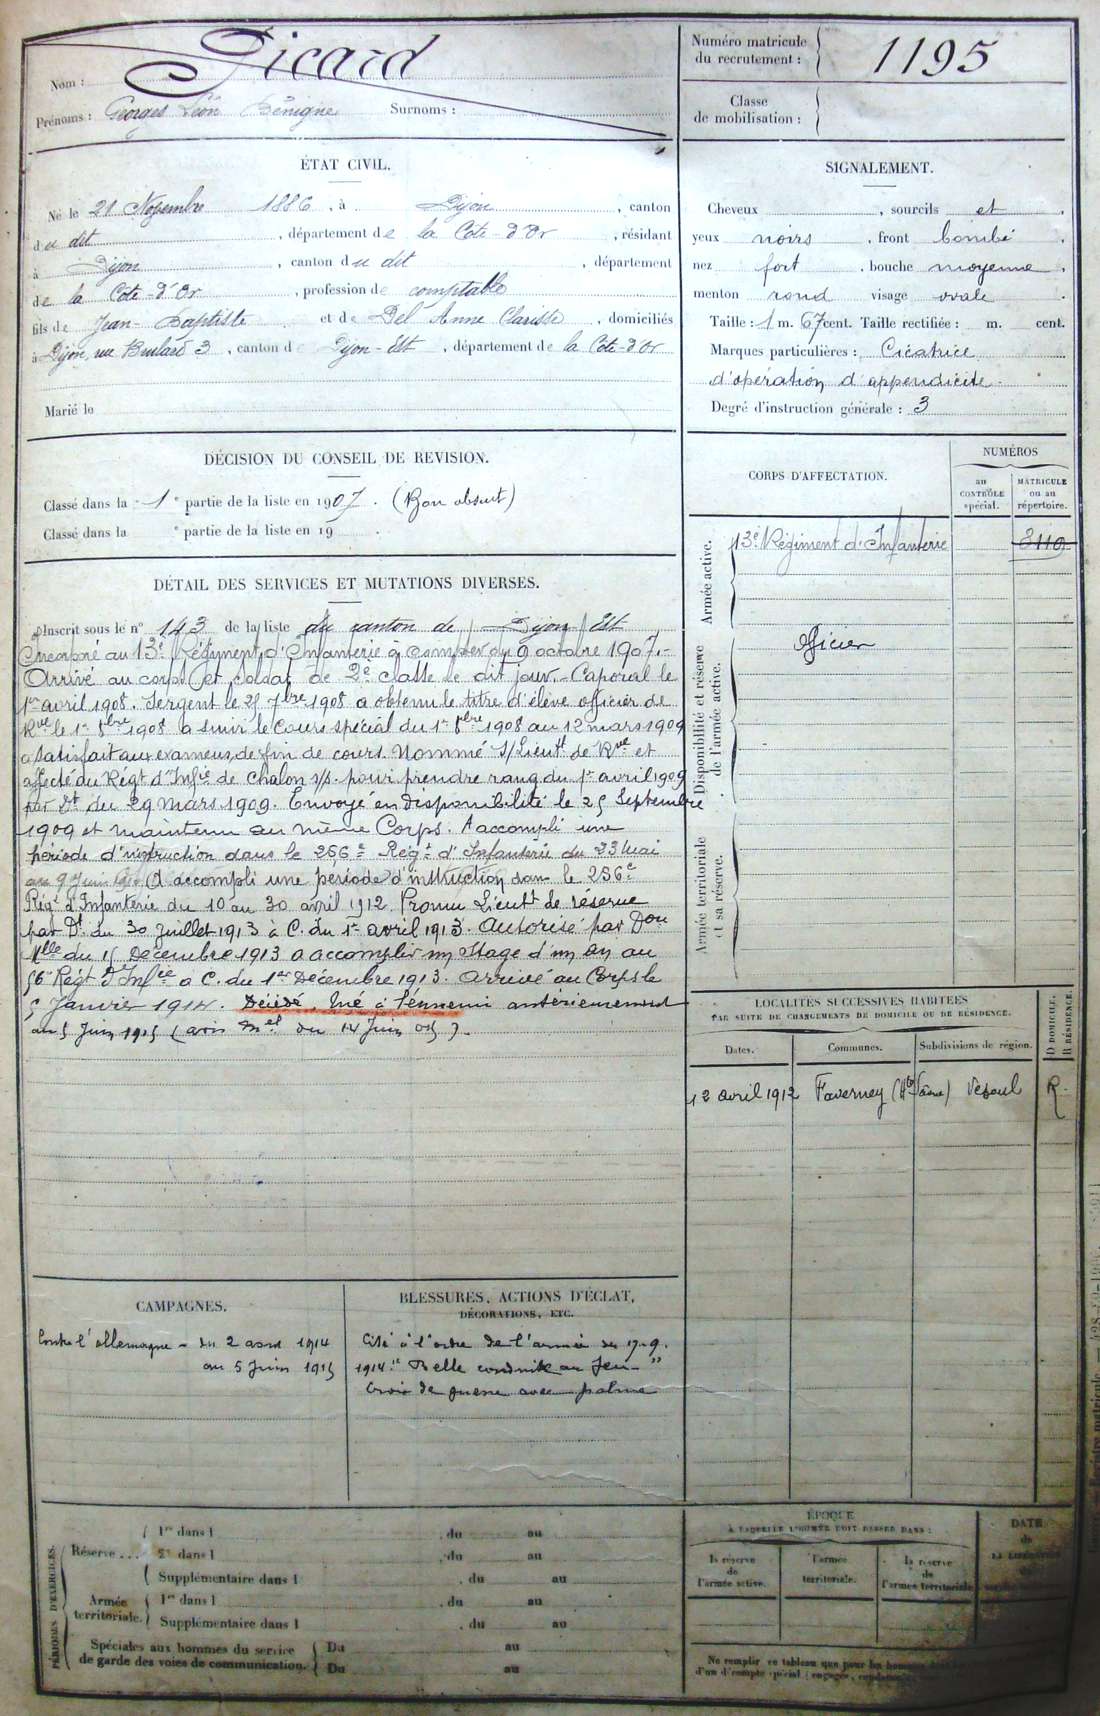 Nom : Picard
Prénoms : Georges Léon Bénigne Surnoms :
Numéro matricule du recrutement : 1195
Classe de mobilisation :
ÉTAT CIVIL.
Né le 21 Novembre 1886, à Dijon, canton
du dit, département de la Côte-d'Or, résidant
à Dijon, canton du dit, département
de la Côte-d'Or, profession de comptable
fils de Jean-Baptiste et de Del Anne Clarisse, domiciliés
à Dijon, rue Brulard 3, canton d Dijon-Est, département de la Côte-d'Or
Marié le
SIGNALEMENT.
Cheveux , sourcils et ,
yeux noirs, front bombé,
nez fort, bouche moyenne,
menton rond visage ovale.
Taille : 1 m. 67 cent. Taille rectifiée : m. cent.
Marques particulières : Cicatrice
d'opération d'appendicite.
Degré d'instruction générale : 3
DÉCISION DU CONSEIL DE REVISION.
Classé dans la 1e partie de la liste en 1907. (Bon absent)
Classé dans la e partie de la liste en 19 .
DÉTAIL DES SERVICES ET MUTATIONS DIVERSES.
Inscrit sous le n° 143 de la liste du canton de Dijon Est
Incorporé au 13e Régiment d'Infanterie à compter du 9 octobre 1907.-
Arrivé au corps et soldat de 2e classe le dit jour.- Caporal le
1er avril 1908. Sergent le 25 7bre 1908 a obtenu le titre d'élève officier de
Rve le 1er 8bre 1908 a suivi le cours spécial du 1er 8bre 1908 au 12 mars 1909
a satisfait aux examens de fin de cours. Nommé S/Lieutt de Rve et
affecté au Régt d'Infie de Chalon s/s. pour prendre rang du 1er avril 1909
par Dt du 29 Mars 1909. Envoyé en disponibilité le 25 Septembre
1909 et maintenu au même Corps. A accompli une
période d'instruction dans le 256e Régt d'Infanterie du 23 Mai
au 9 Juin A accompli une période d'instruction dans le 256e
Régt d'Infanterie du 10 au 30 avril 1912. Promu Lieutt de réserve
par Dt du 30 Juillet 1913 à C. du 1er avril 1913. Autorisé par Don
Mlle du 15 Décembre 1913 a accomplir un Stage d'un an au
56e Régt d'Infie à C. du 1er Décembre 1913. Arrivé au Corps le
5 Janvier 1914. Décédé, Tué à l'ennemi antérieurement
au 5 Juin 1915 (avis Mel du 14 Juin 015).
CORPS D'AFFECTATION.
NUMÉROS
au CONTRÔLE spécial.
MATRICULE ou au répertoire.
Armée active.
13e Régiment d'Infanterie
3110
Disponibilité et réserve de l'armée active.
Officier
Armée territoriale et sa réserve.
LOCALITÉS SUCCESSIVES HABITÉES
PAR SUITE DE CHANGEMENTS DE DOMICILE OU DE RÉSIDENCE.
D DOMICILE. R RÉSIDENCE.
Dates. Communes. Subdivisions de région.
12 avril 1912 Faverney (Hte Saône) Vesoul R.
CAMPAGNES.
Contre l'allemagne - du 2 aout 1914
au 5 Juin 1915
BLESSURES, ACTIONS D'ÉCLAT,
DÉCORATIONS, ETC.
Cité à l'ordre de l'armée du 17.9.
1914 "Belle conduite au feu"
Croix de guerre avec palme
PÉRIODES D'EXERCICES.
Réserve ... 1re dans l . du au
2e dans l . du au
Supplémentaire dans l . du au
Armée territoriale. 1re dans l . du au
Supplémentaire dans l . du au
Spéciales aux hommes du service de garde des voies de communication. Du au
Du au
ÉPOQUE
À LAQUELLE L'HOMME DOIT PASSER DANS :
la réserve de l'armée active.
l'armée territoriale.
la réserve de l'armée territoriale
DATE de LA LIBÉRATION
Ne remplir ce tableau que pour les hommes
d'un décompte spécial (engagés,